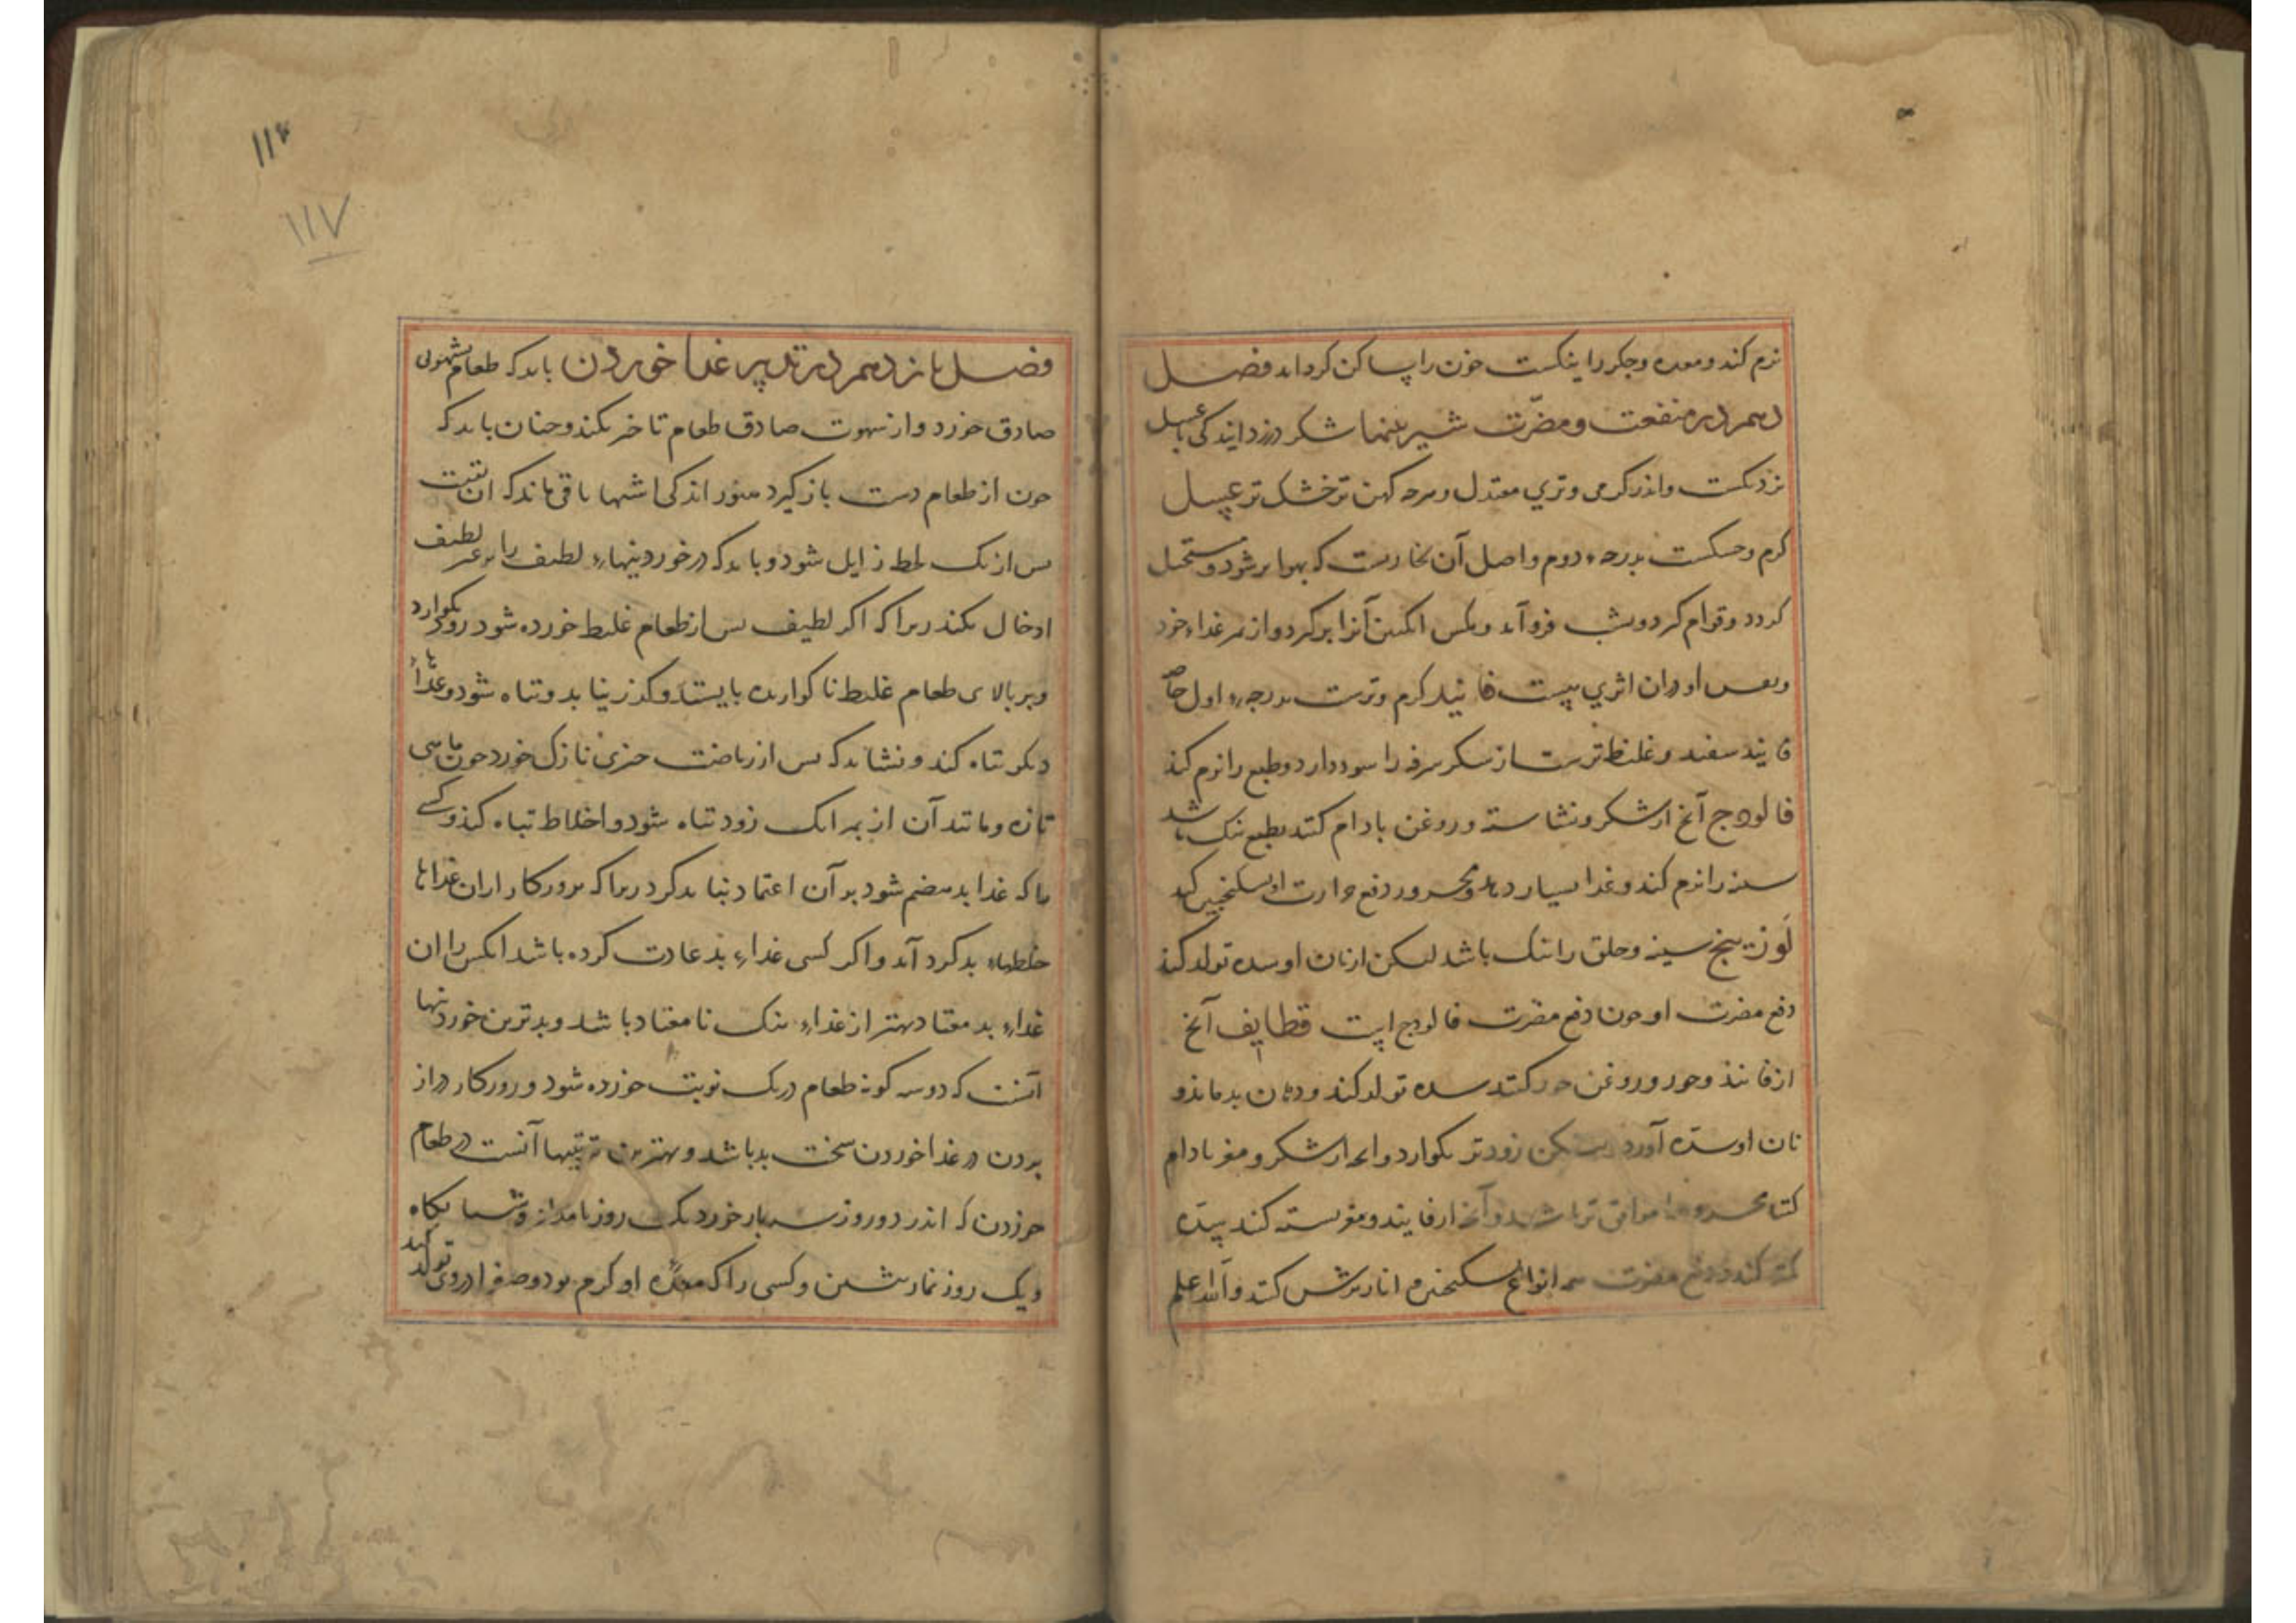 نرم کند و معده و جکر را نیکست خون را ساکن کرداند فصل
دهم در منفعت و مضرّت شیرینیها شکر در زدایندکی با عسل
نزدیکست و اندر کرمی و تری معتدل و هرجه کهن تر خشک تر عسل
کرم و خشکست بدرجهٔ دوم و اصل آن بخاریست که بهوا بر شود و مستحیل
کردد و قوام کیرد و بشب فرو آید و مکس انکبین آنرا برکیرد و از بهر غذاء خود
و بعسل او در ان اثری نیست فانید کرم و ترست بدرجهٔ اول خاصه
فانید سفید و غلیظ ترست از شکر سرفه را سود دارد و طبع را نرم کند
فالودج آنج از شکر و نشاسته و روغن بادام کنند بطبع نیک باشد
سینه را نرم کند و غذا بسیار دهد و محرور دفع حرارت او بسکنجبین کند
لوزینج سینه و حلق را نیک باشد لیکن از نان او سده تولد کند
دفع مضرت او جون دفع مضرت فالودج است قطایف آنج
از فانیذ و جوز و روغن جوز کنند سده تولد کند و دهان بدماند و
نان او سدّه آورد لیکن زودتر بکوارد و انج از شکر و مغز بادام
کنند محرور را موافق تر باشد و آنج از فانیذ و مغز پسته کنند سدّه
کمتر کند و دفع مضرت همه انواع بسکنجبین و انار ترش کنند والله اعلم
۱۱۶
۱۱۷
فصل یازدهم در تدبیر غذا خوردن باید که طعام بشهوتی
صادق خورد و از شهوت صادق طعام تاخیر نکند و جنان باید که
جون از طعام دست باز کیرد هنوز اندکی اشتها باقی ماند که ان بقیت
بس از یک لحظه زایل شود و باید که در خوردنیهاء لطیف را بر غیر لطیف
ادخال نکند زیرا که اکر لطیف بس از طعام غلیظ خورده شود زودتر بکوارد
و بر بالای طعام غلیظ ناکوارده بایستد و کذر نیابد و تباه شود و غذاها
دیکر تباه کند و نشاید که بس از ریاضت جیزی نازک خورد جون ماهی
تازه و مانند آن از بهر انک زود تباه شود و اخلاط تباه کند و کسی
را که غذا بد هضم شود بر آن اعتماد نباید کرد زیرا که بروزکار از ان غذاها
خلطهاء بد کرد آید و اکر کسی غذاء بد عادت کرده باشد انکس را ان
غذاء بد معتاد بهتر از غذاء نیک نامعتاد باشد و بدترین خوردنیها
آنست که دو سه کونه طعام در یک نوبت خورده شود و روزکار دراز
بردن در غذا خوردن سخت بد باشد و بهترین ترتیبها آنست در طعام
خوردن که اندر دو روز سه بار خورد یک روز بامداد و شبانکاه
و یک روز نماز بیشین و کسی را که معدهٔ او کرم بود و صفرا در وی تولد کند